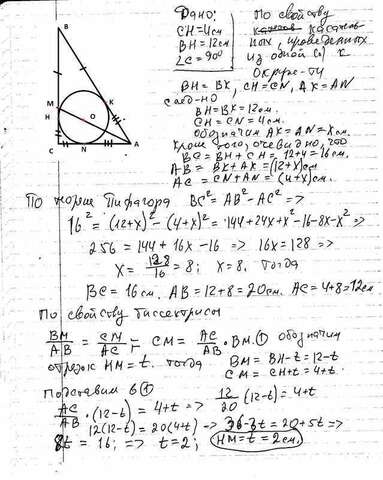 Дано:
CH=4см
BH=12см
∠C=90°
По свойству
касатель-
ных, проведенных
из одной (·) к
окруж-ти
BH = BK, CH=CN, AK=AN
след-но
BH=BK=12см.
CH=CN=4см.
обозначим AK=AN=Xсм.
кроме того, очевидно, что
BC=BH+CH=12+4=16см.
AB = BK+AK=(12+X)см
AC = CN+AN=(4+X)см.
B
M
H
K
O
C
N
A
По теореме Пифагора BC²=AB²-AC² =>
16² = (12+X)² - (4+X)² = 144+24X+X²-16-8X-X² =>
256 = 144 + 16X - 16 => 16X = 128 =>
X = 128/16 = 8; X=8. Тогда
BC = 16см. AB = 12+8=20см. AC=4+8=12см
По свойству биссектрисы
BM/AB = CM/AC; CM = AC/AB · BM. (1) обозначим
отрезок HM=t. тогда BM = BH-t = 12-t
CM = CH+t = 4+t.
Подставим в (1)
AC/AB · (12-t) = 4+t => 12/20 (12-t) = 4+t
12(12-t) = 20(4+t) -> 36-3t = 20+5t =>
8t = 16; => t=2; HM=t=2см.